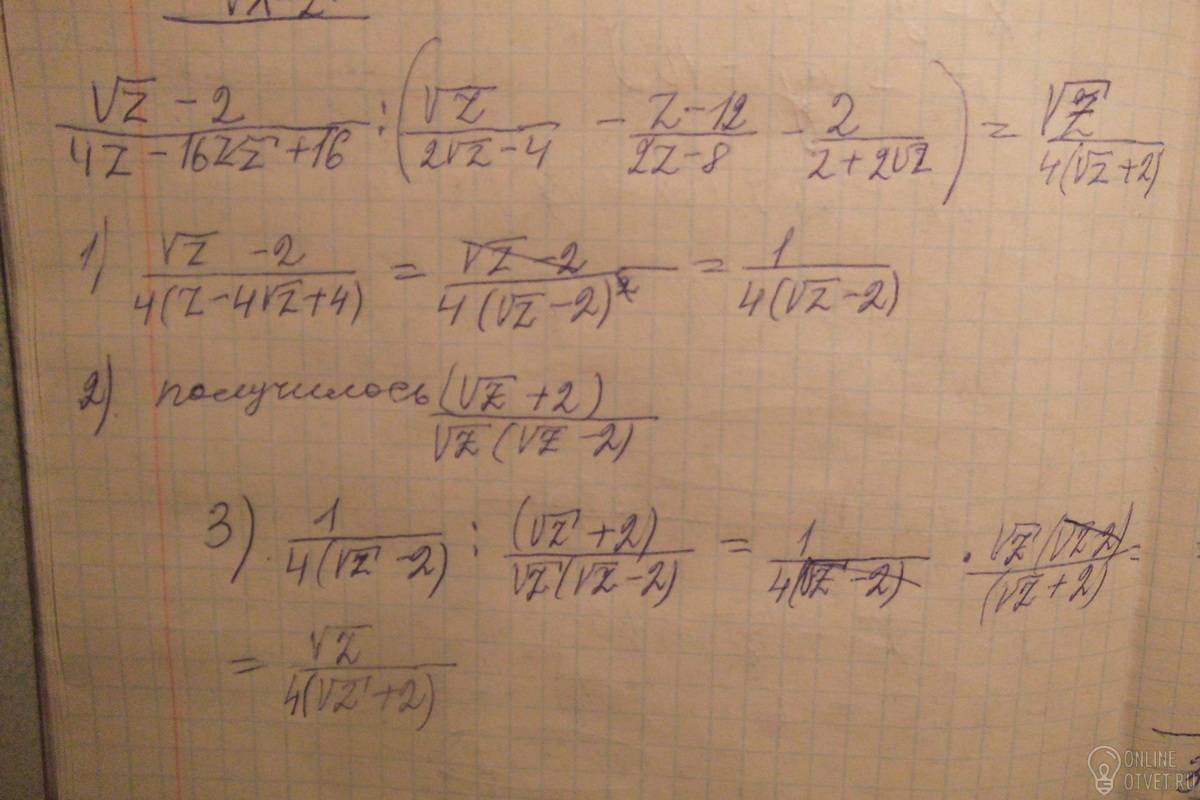 (√z - 2)/(4z - 16z√z + 16) : (√z/(2√z - 4) - (z - 12)/(2z - 8) - 2/(z + 2√z)) = √z/(4(√z + 2))
1) (√z - 2)/(4(z - 4√z + 4)) = (√z - 2)/(4(√z - 2)²) = 1/(4(√z - 2))
2). получилось (√z + 2)/(√z(√z - 2))
3). 1/(4(√z - 2)) : (√z + 2)/(√z(√z - 2)) = 1/(4(√z - 2)) · √z(√z - 2)/(√z + 2) =
= √z/(4(√z + 2))
ONLINE
OTVET.RU